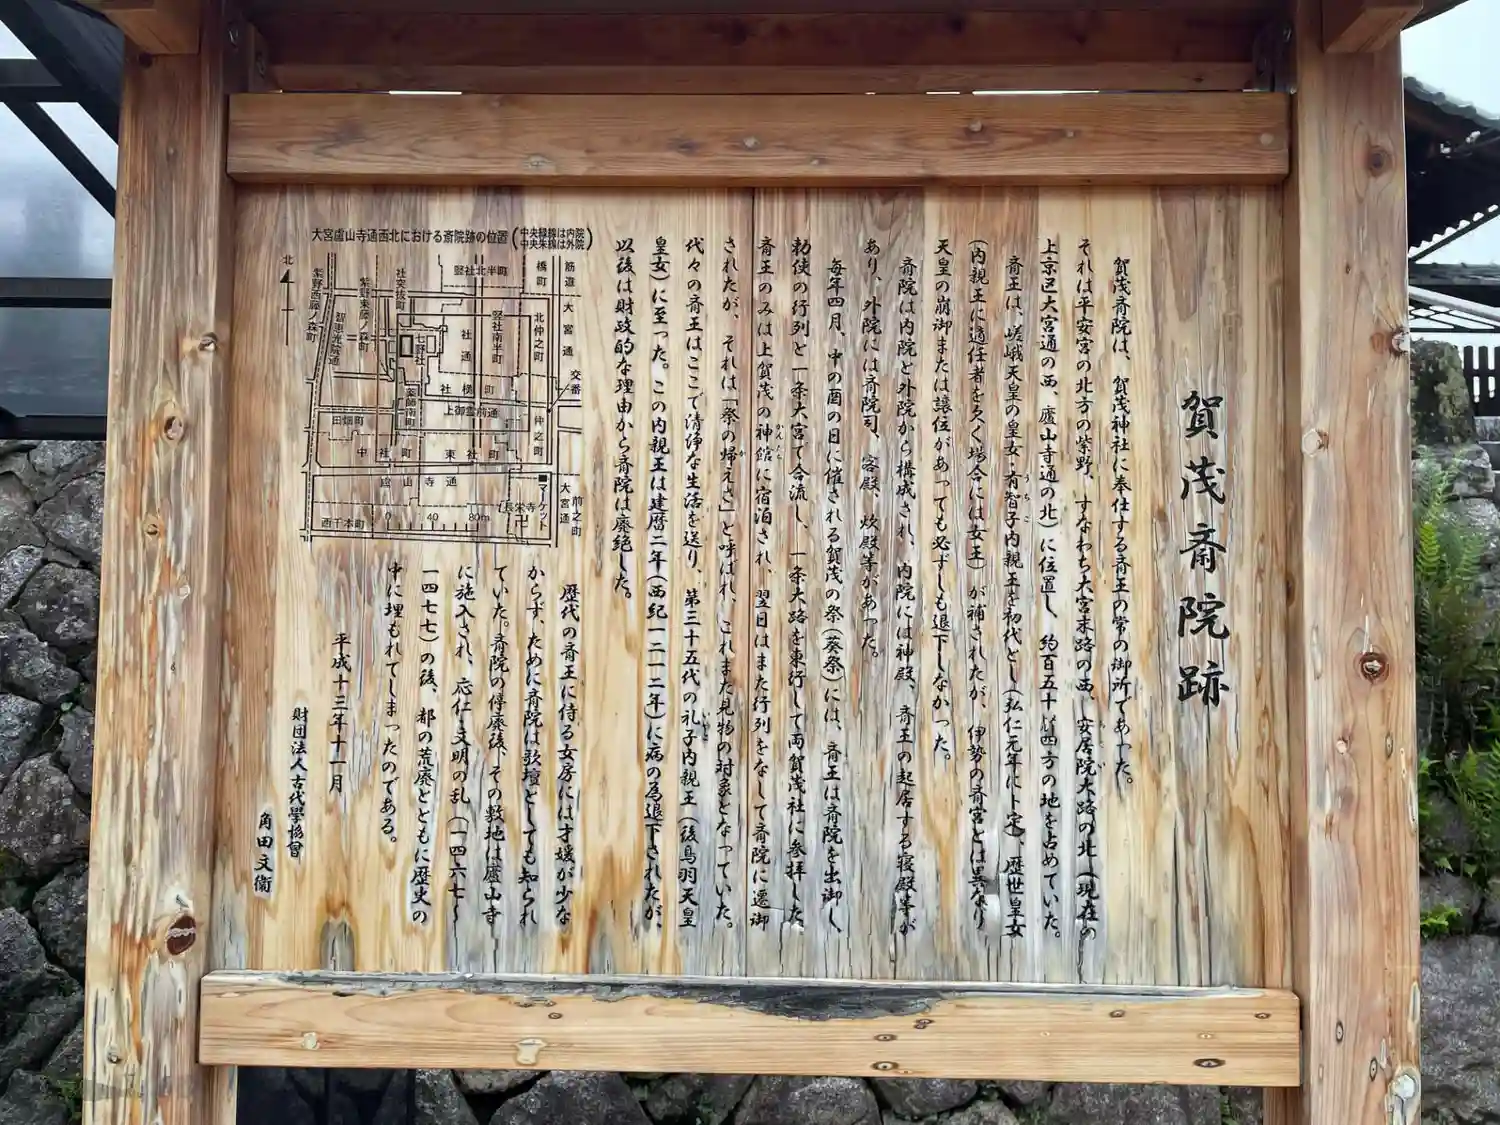 賀茂斎院跡
賀茂斎院は、賀茂神社に奉仕する斎王の常の御所であった。
それは平安宮の北方の紫野、すなわち大宮末路の西、安居院大路の北(現在の
上京区大宮通の西、廬山寺通の北)に位置し、約百五十㍍四方の地を占めていた。
斎王は、嵯峨天皇の皇女・有智子内親王を初代とし(弘仁元年に卜定)、歴世皇女
(内親王に適任者を欠く場合には女王)が補されたが、伊勢の斎宮とは異なり
天皇の崩御または譲位があっても必ずしも退下しなかった。
斎院は内院と外院から構成され、内院には神殿、斎王の起居する寝殿等が
あり、外院には斎院司、客殿、炊殿等があった。
毎年四月、中の酉の日に催される賀茂の祭(葵祭)には、斎王は斎院を出御し、
勅使の行列と一条大宮で合流し、一条大路を東行して両賀茂社に参拝した。
斎王のみは上賀茂の神館に宿泊され、翌日はまた行列をなして斎院に還御
されたが、それは「祭の帰えさ」と呼ばれ、これまた見物の対象となっていた。
代々の斎王はここで清浄な生活を送り、第三十五代の礼子内親王(後鳥羽天皇
皇女)に至った。この内親王は建暦二年(西紀一二一二年)に病の為退下されたが、
以後は財政的な理由から斎院は廃絶した。
歴代の斎王に侍る女房には才媛が少な
からず、ために斎院は歌壇としても知られ
ていた。斎院の停廃後、その敷地は廬山寺
に施入され、応仁・文明の乱(一四六七~
一四七七)の後、都の荒廃とともに歴史の
中に埋もれてしまったのである。
平成十三年十一月
財団法人古代學協會
角田文衞
大宮盧山寺通西北における斎院跡の位置
(中央緑線は内院
中央朱線は外院)
北
筋違
橋町
竪社北半町
社突抜町
紫野東藤ノ森町
紫野西藤ノ森町
大宮通
北仲之町
竪社南半町
社通
七野社
智恵光院通
交番
社横町
薬師南町
上御霊前通
仲之町
田畑町
東社町
中社町
廬山寺通
■マーケット
大宮通
前之町
長栄寺
卍
西千本町
0 40 80m